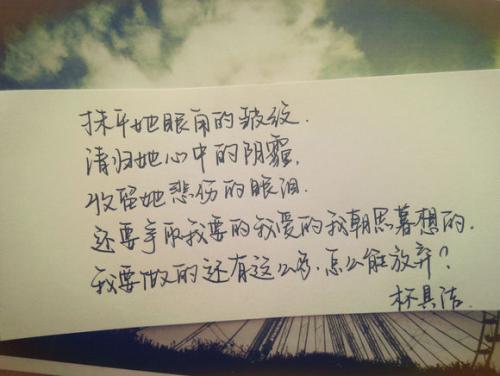 抹平她眼角的皱纹.
清归她心中的阴霾.
收留她悲伤的眼泪.
还要争取我要的我爱的我朝思暮想的.
我要做的还有这么多.怎么能放弃?
林具洁.